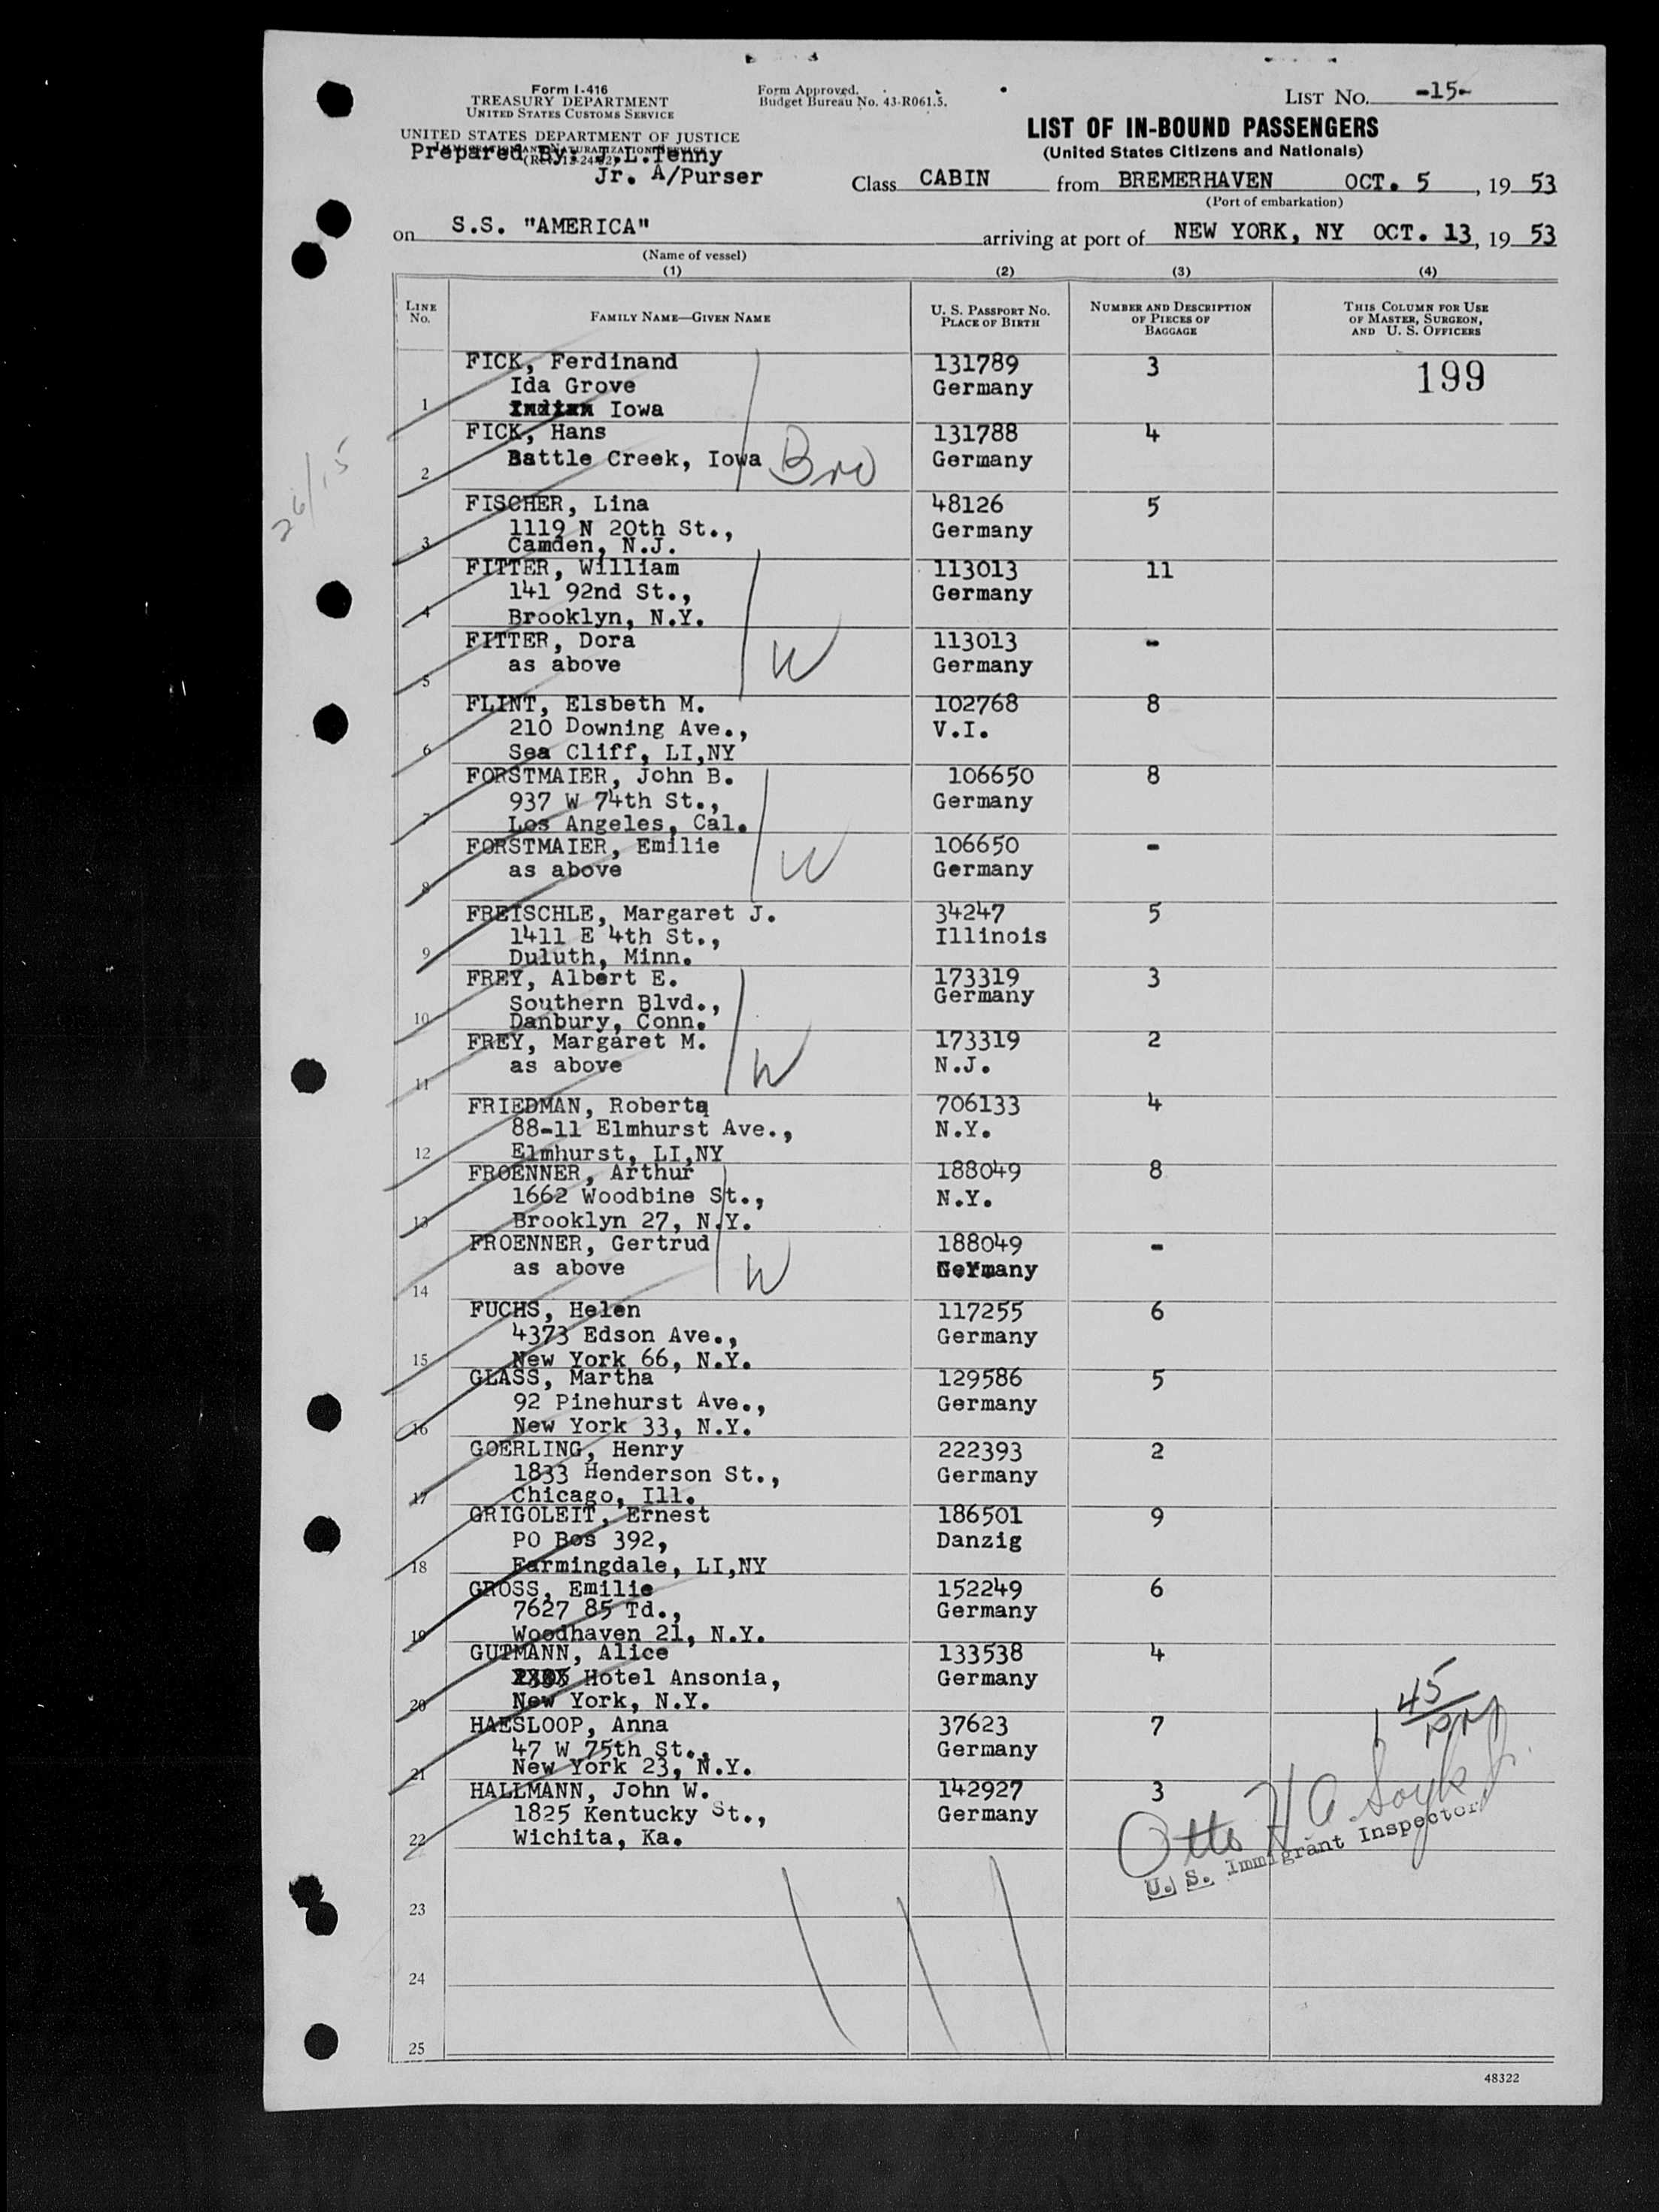 Form I-416
TREASURY DEPARTMENT
UNITED STATES CUSTOMS SERVICE
UNITED STATES DEPARTMENT OF JUSTICE
Prepared By: J.L.Tenny
Jr. A/Purser
Form Approved.
Budget Bureau No. 43-R061.5.
LIST NO. -15-
LIST OF IN-BOUND PASSENGERS
(United States Citizens and Nationals)
Class CABIN from BREMERHAVEN OCT. 5, 19 53
(Port of embarkation)
on S.S. "AMERICA" arriving at port of NEW YORK, NY OCT. 13, 19 53
(Name of vessel)
(1) (2) (3) (4)
LINE NO. FAMILY NAME—GIVEN NAME U. S. PASSPORT NO. PLACE OF BIRTH NUMBER AND DESCRIPTION OF PIECES OF BAGGAGE THIS COLUMN FOR USE OF MASTER, SURGEON, AND U. S. OFFICERS
FICK, Ferdinand 131789 3 199
Ida Grove Germany
1 Iowa
FICK, Hans 131788 4
2 Battle Creek, Iowa Bro Germany
26/15
FISCHER, Lina 48126 5
1119 N 20th St., Germany
3 Camden, N.J.
FITTER, William 113013 11
141 92nd St., Germany
4 Brooklyn, N.Y.
FITTER, Dora 113013 -
as above W Germany
5
FLINT, Elsbeth M. 102768 8
210 Downing Ave., V.I.
6 Sea Cliff, LI,NY
FORSTMAIER, John B. 106650 8
937 W 74th St., Germany
7 Los Angeles, Cal.
FORSTMAIER, Emilie 106650 -
as above W Germany
8
FREISCHLE, Margaret J. 34247 5
1411 E 4th St., Illinois
9 Duluth, Minn.
FREY, Albert E. 173319 3
Southern Blvd., Germany
10 Danbury, Conn.
FREY, Margaret M. 173319 2
as above W N.J.
11
FRIEDMAN, Roberta 706133 4
88-11 Elmhurst Ave., N.Y.
12 Elmhurst, LI,NY
FROENNER, Arthur 188049 8
1662 Woodbine St., N.Y.
13 Brooklyn 27, N.Y.
FROENNER, Gertrud 188049 -
as above W Germany
14
FUCHS, Helen 117255 6
4373 Edson Ave., Germany
15 New York 66, N.Y.
GLASS, Martha 129586 5
92 Pinehurst Ave., Germany
16 New York 33, N.Y.
GOERLING, Henry 222393 2
1833 Henderson St., Germany
17 Chicago, Ill.
GRIGOLEIT, Ernest 186501 9
PO Bos 392, Danzig
18 Farmingdale, LI,NY
GROSS, Emilie 152249 6
7627 85 Td., Germany
19 Woodhaven 21, N.Y.
GUTMANN, Alice 133538 4
Hotel Ansonia, Germany
20 New York, N.Y.
HAESLOOP, Anna 37623 7 1 45/PM
47 W 75th St., Germany
21 New York 23, N.Y.
HALLMANN, John W. 142927 3
1825 Kentucky St., Germany
22 Wichita, Ka.
Otto H A
U. S. Immigrant Inspector
23
24
25
48322